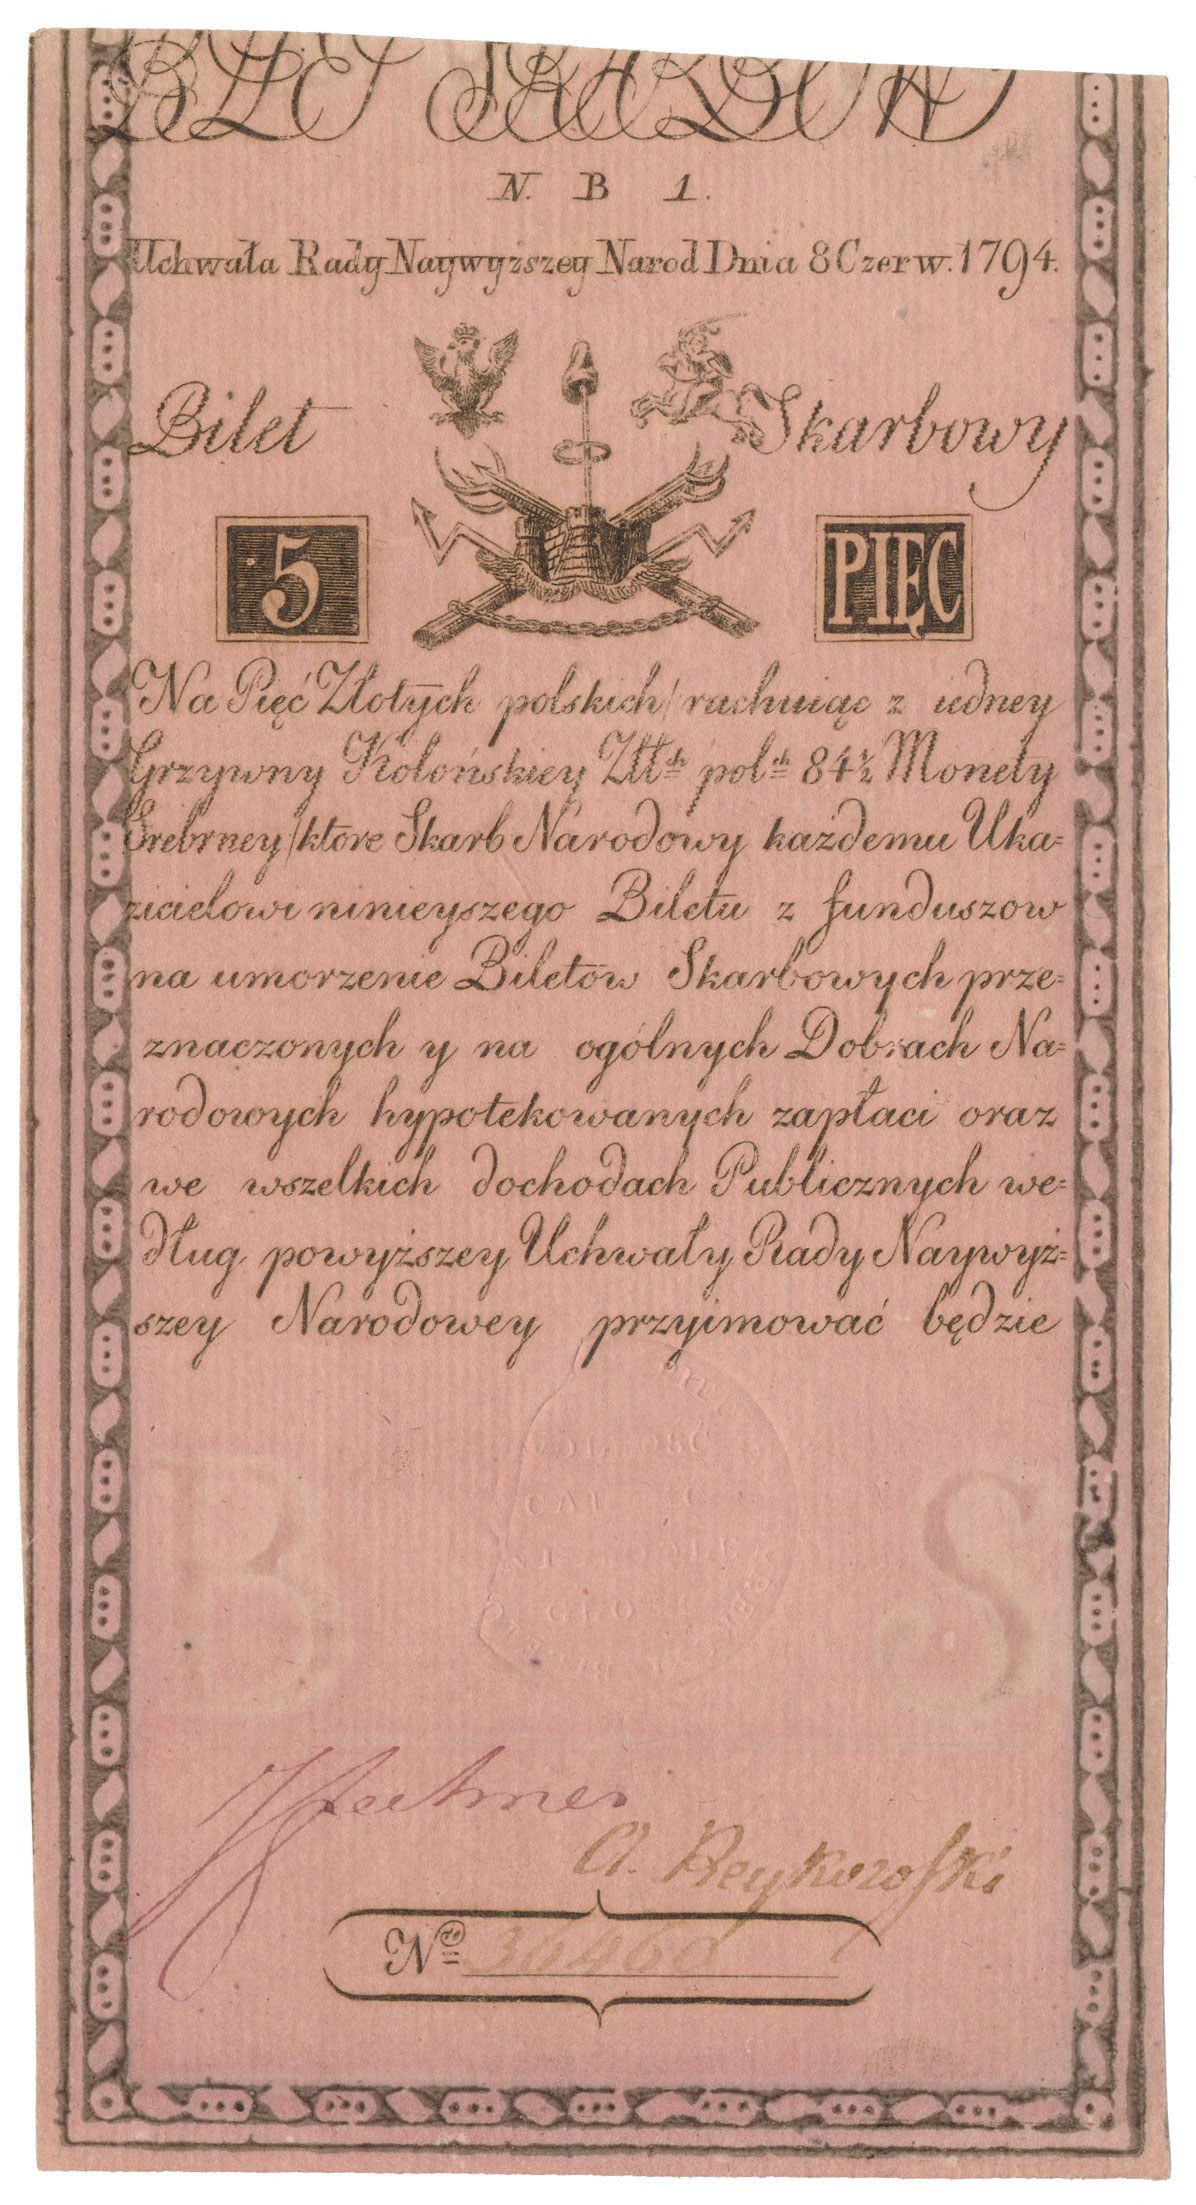 BILET SKARBOWY
N. B 1.
Uchwała Rady Naywyższey Narod Dnia 8 Czerw. 1794.
Bilet Skarbowy
5 PIĘC
Na Pięć Złotych polskich/rachuiąc z iedney
Grzywny Kolońskiey Złł:ch pol:ch 84½ Monety
Srebrney/ktore Skarb Narodowy każdemu Uka=
zicielowi ninieyszego Biletu z funduszow
na umorzenie Biletow Skarbowych prze=
znaczonych y na ogólnych Dobrach Na=
rodowych hypotekowanych zapłaci oraz
we wszelkich dochodach Publicznych we=
dług powyższey Uchwały Rady Naywyż=
szey Narodowey przyimować będzie
WOLNOSC
B S
A. Reykowski
N:ro 36460